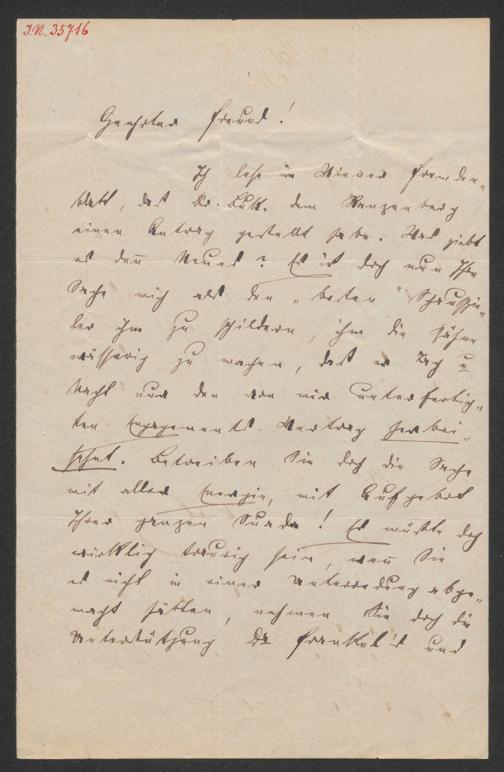 J.N. 35716
Geehrter Freund!
Ich lese im Wiener Fremden„
blatt, daß Dr. dem Ranzenberg
einen Antrag gestellt habe. Was giebt
es denn Neues? Es ist doch nun Ihre
Sache mich als den „besten" Schauspie„
ler ihm zu schildern, ihm die Zähne
wässerig zu machen, daß er Tag u
Nacht nur den von mir unterfertig„
ten Engagements-Vertrag herbei„
sehnt. Betreiben Sie doch die Sache
mit aller Energie, mit Aufgebot
Ihrer ganzen Suada! Es müßte doch
wirklich traurig sein, wenn Sie
es nicht in einer Unterredung abge„
macht hätten, nehmen Sie doch die
Unterstützung Dr Frankel's und